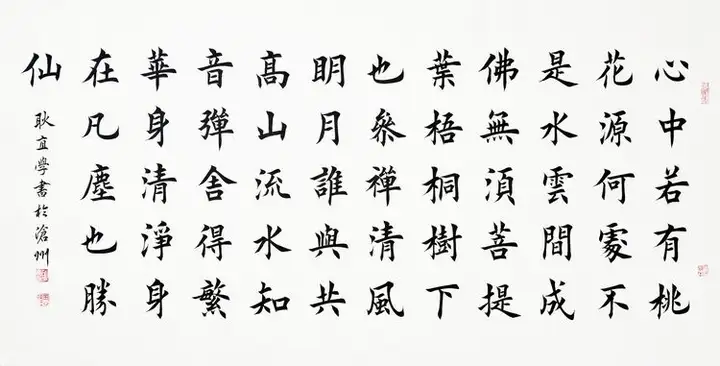 心中若有桃
花源何處不
是水雲間成
佛無須菩提
葉梧桐樹下
也參禪清風
明月誰與共
高山流水知
音彈舍得繁
華身清淨身
在凡塵也勝
仙
耿宜學書於滄州